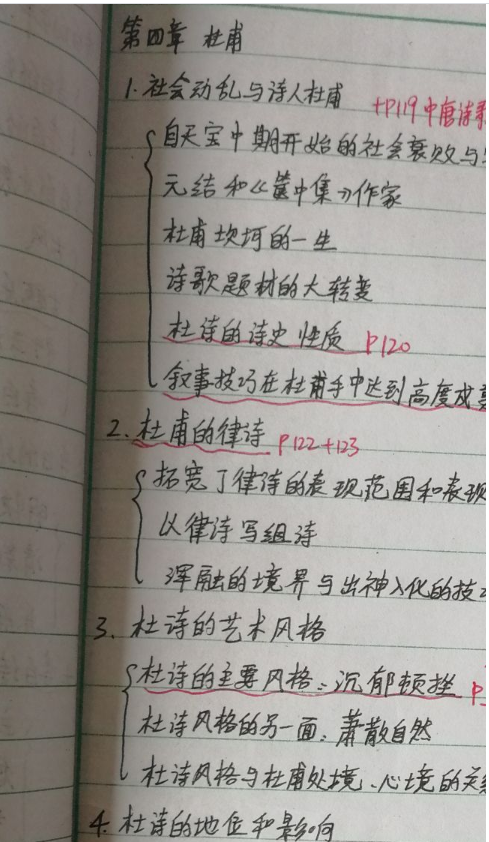 第四章 杜甫
1. 社会动乱与诗人杜甫 +P119 中唐诗歌
自天宝中期开始的社会衰败与
元结和《箧中集》作家
杜甫坎坷的一生
诗歌题材的大转变
杜诗的诗史性质 P120
叙事技巧在杜甫手中达到高度成
2. 杜甫的律诗 P122+123
拓宽了律诗的表现范围和表现
以律诗写组诗
浑融的境界与出神入化的技
3. 杜诗的艺术风格
杜诗的主要风格:沉郁顿挫 P
杜诗风格的另一面:萧散自然
杜诗风格与杜甫处境、心境的关
4. 杜诗的地位和影响